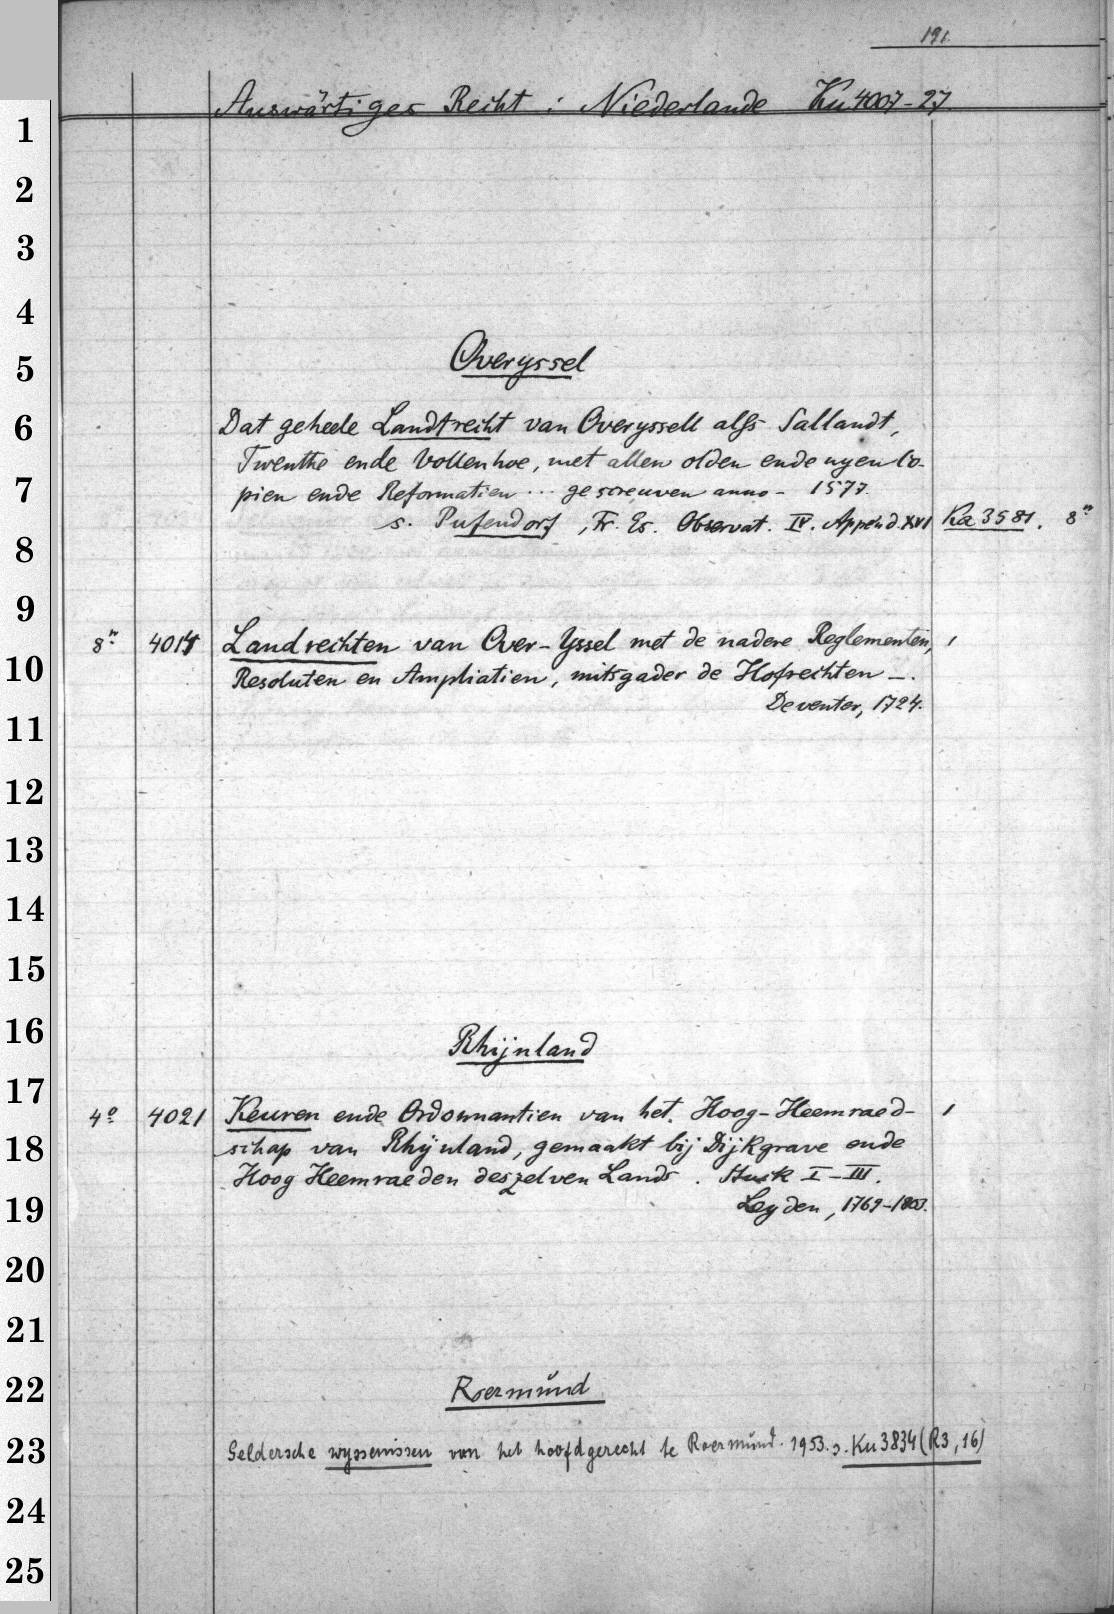 191.
Auswärtiges Recht : Niederlande Ku 4007-27
1
2
3
4
Overyssel
5
6 Dat geheele Landtrecht van Overyssell alss Sallandt,
Twenthe ende Vollenhoe, met allen olden ende nyen Co-
7 pien ende Reformatien ... gescreuven anno - 1577.
s. Pufendorf, Fr. Es. Observat. IV. Append. XVI Ka 3581. 8°
8
9
8° 4014 Landrechten van Over-Yssel met de nadere Reglementen, 1
10 Resoluten en Ampliatien, mitsgader de Hofrechten -.
Deventer, 1724.
11
12
13
14
15
16
Rhijnland
17
4° 4021 Keuren ende Ordonnantien van het Hoog-Heemraed- 1
18 schap van Rhijnland, gemaakt bij Dijkgrave ende
Hoog Heemraeden deszelven Lands. Stuck I-III.
19 Leyden, 1769-1803.
20
21
22 Roermund
23 Geldersche wyssenissen van het hoofdgerecht te Roermund. 1953. s. Ku 3834 (R3, 16)
24
25